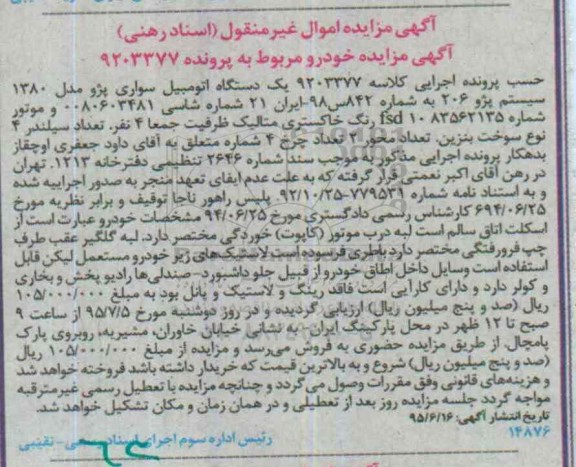 آگهی مزایده اموال غیرمنقول (اسناد رهنی)
آگهی مزایده خودرو مربوط به پرونده ۹۲۰۳۳۷۷
حسب پرونده اجرایی کلاسه ۹۲۰۳۳۷۷ یک دستگاه اتومبیل سواری پژو مدل ۱۳۸۰
سیستم پژو ۲۰۶ به شماره ۸۴۲س۹۸-ایران ۲۱ شماره شاسی ۰۰۸۰۶۰۳۴۸۱ و موتور
شماره fsd ۱۰ ۸۳۵۶۲۱۳۵ رنگ خاکستری متالیک ظرفیت جمعا ۴ نفر. تعداد سیلندر ۴
نوع سوخت بنزین. تعداد محور ۲ تعداد چرخ ۴ شماره متعلق به آقای داود جعفری اوچقاز
بدهکار پرونده اجرایی مذکور به موجب سند شماره ۲۶۴۶ تنظیمی دفترخانه ۱۲۱۳ تهران
در رهن آقای اکبر نعمتی قرار گرفته که به علت عدم ایفای تعهد منجر به صدور اجراییه شده
و به استناد نامه شماره ۷۷۹۵۳۱-۹۲/۱۰/۲۵ پلیس راهور ناجا توقیف و برابر نظریه مورخ
۶۹۴/۰۶/۲۵ کارشناس رسمی دادگستری مورخ ۹۴/۰۶/۲۵ مشخصات خودرو عبارت است از
اسکلت اتاق سالم است لبه درب موتور (کاپوت) خوردگی مختصر دارد. لبه گلگیر عقب طرف
چپ فرورفتگی مختصر دارد باطری فرسوده است لاستیک‌های زیر خودرو مستعمل لیکن قابل
استفاده است وسایل داخل اطاق خودرو از قبیل جلو داشبورد- صندلی‌ها رادیو پخش و بخاری
و کولر دارد و دارای کارآیی است فاقد رینگ و لاستیک و پانل بود به مبلغ ۱۰۵/۰۰۰/۰۰۰
ریال (صد و پنج میلیون ریال) ارزیابی گردیده و در روز دوشنبه مورخ ۹۵/۷/۵ از ساعت ۹
صبح تا ۱۲ ظهر در محل پارکینگ ایران به نشانی خیابان خاوران، مشیریه، روبروی پارک
پامچال. از طریق مزایده حضوری به فروش می‌رسد و مزایده از مبلغ ۱۰۵/۰۰۰/۰۰۰ ریال
(صد و پنج میلیون ریال) شروع و به بالاترین قیمت که خریدار داشته باشد فروخته خواهد شد
و هزینه‌های قانونی وفق مقررات وصول می‌گردد و چنانچه مزایده با تعطیل رسمی غیرمترقبه
مواجه گردد جلسه مزایده روز بعد از تعطیلی و در همان زمان و مکان تشکیل خواهد شد.
تاریخ انتشار آگهی: ۹۵/۶/۱۶
۱۴۸۷۶
رئیس اداره سوم اجرای اسناد رسمی- نقیبی